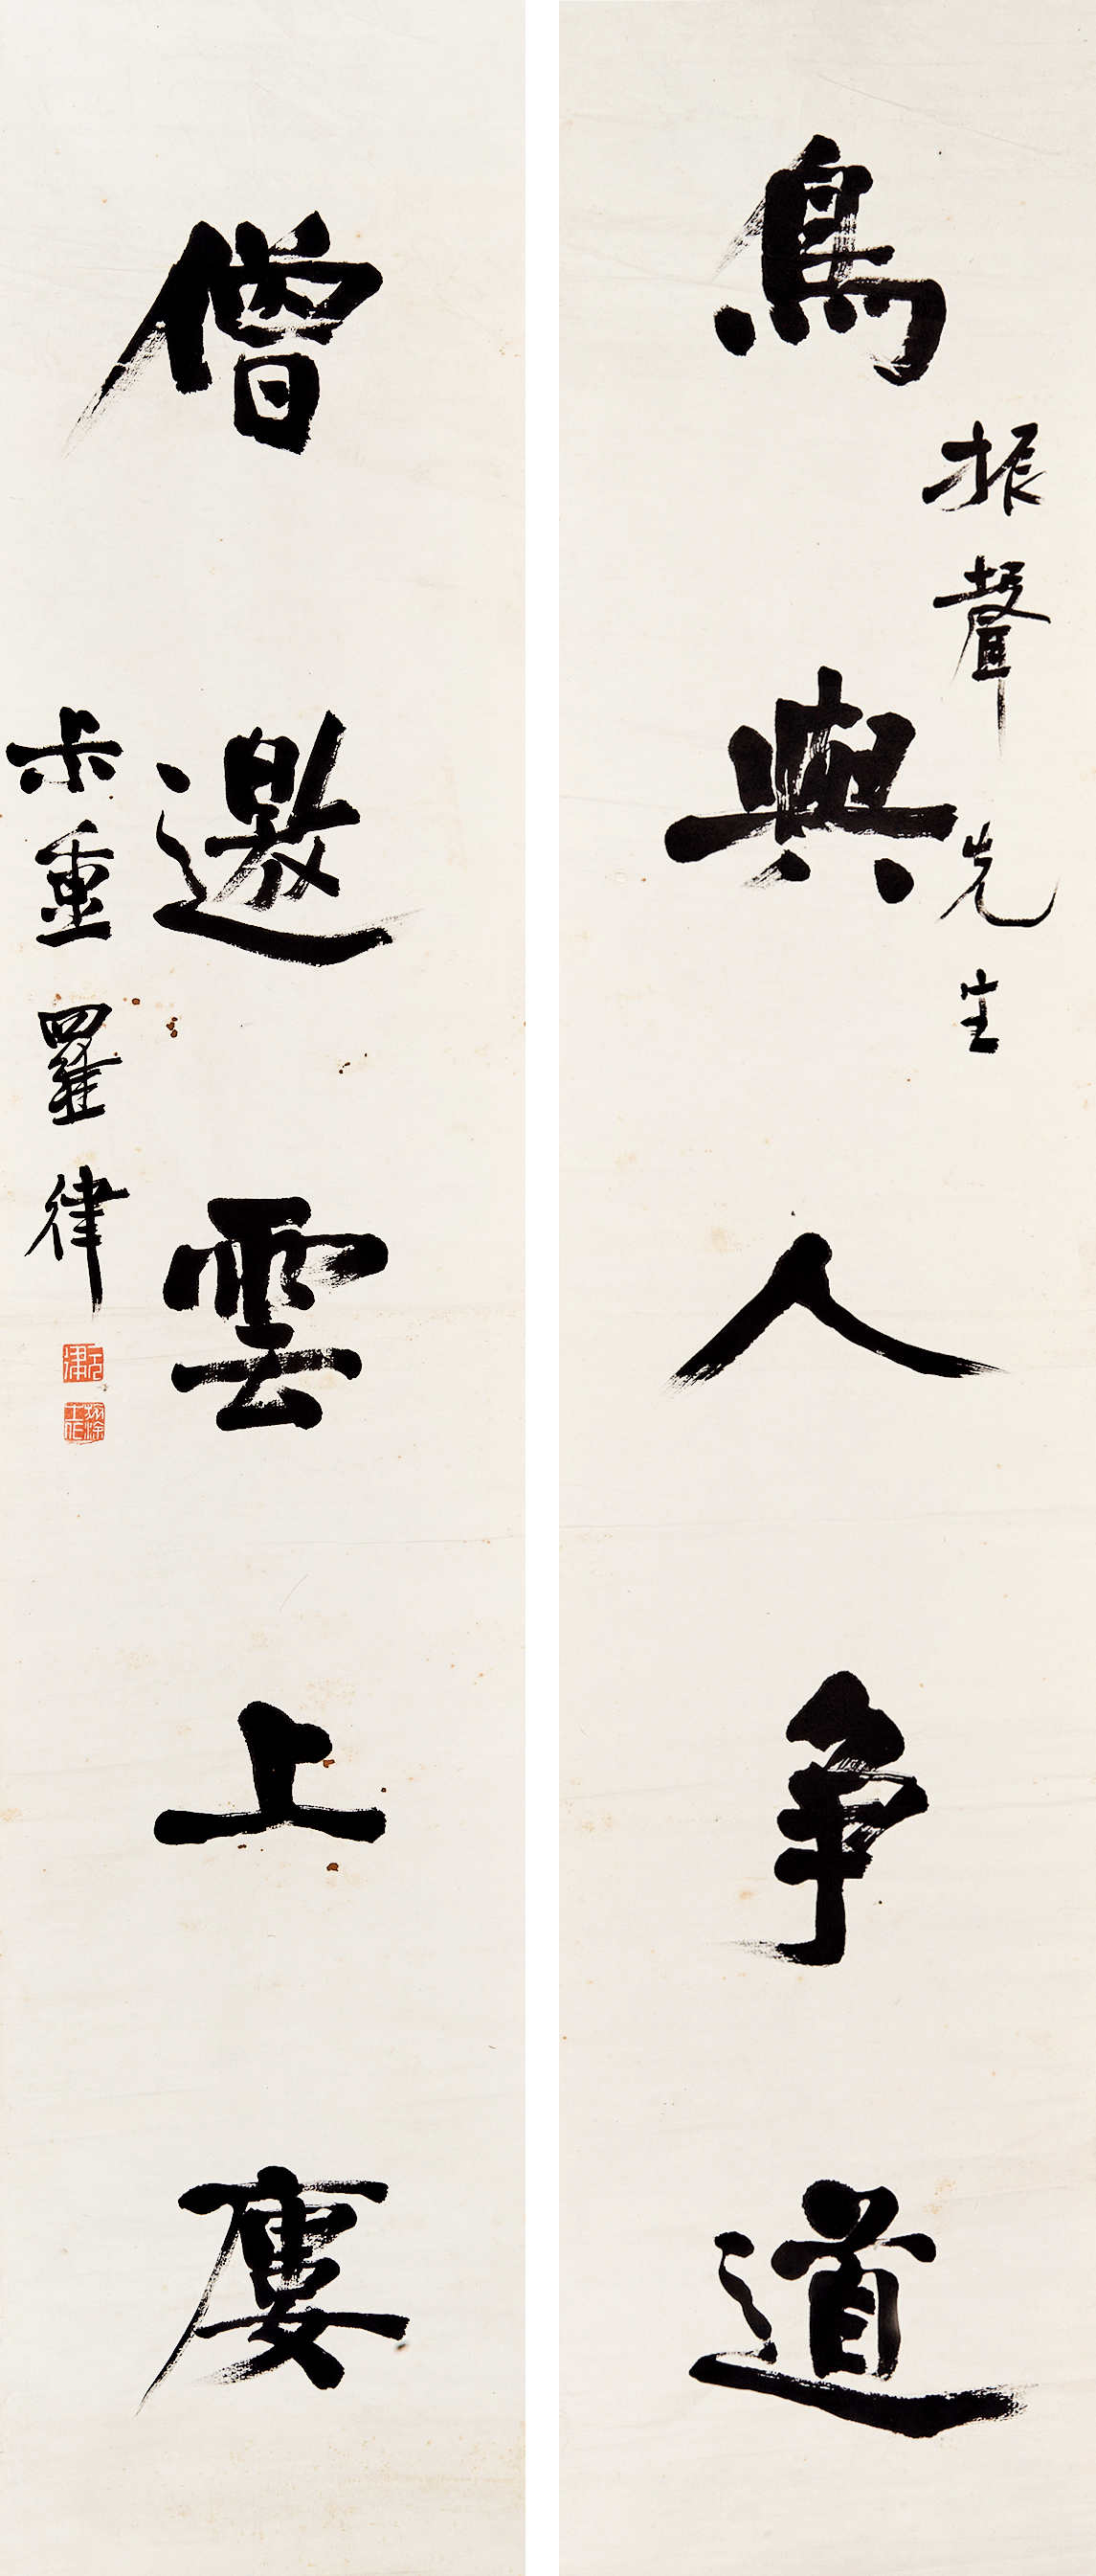 鳥與人争道
振聲先生
僧邀雲上廔
尗重羅律